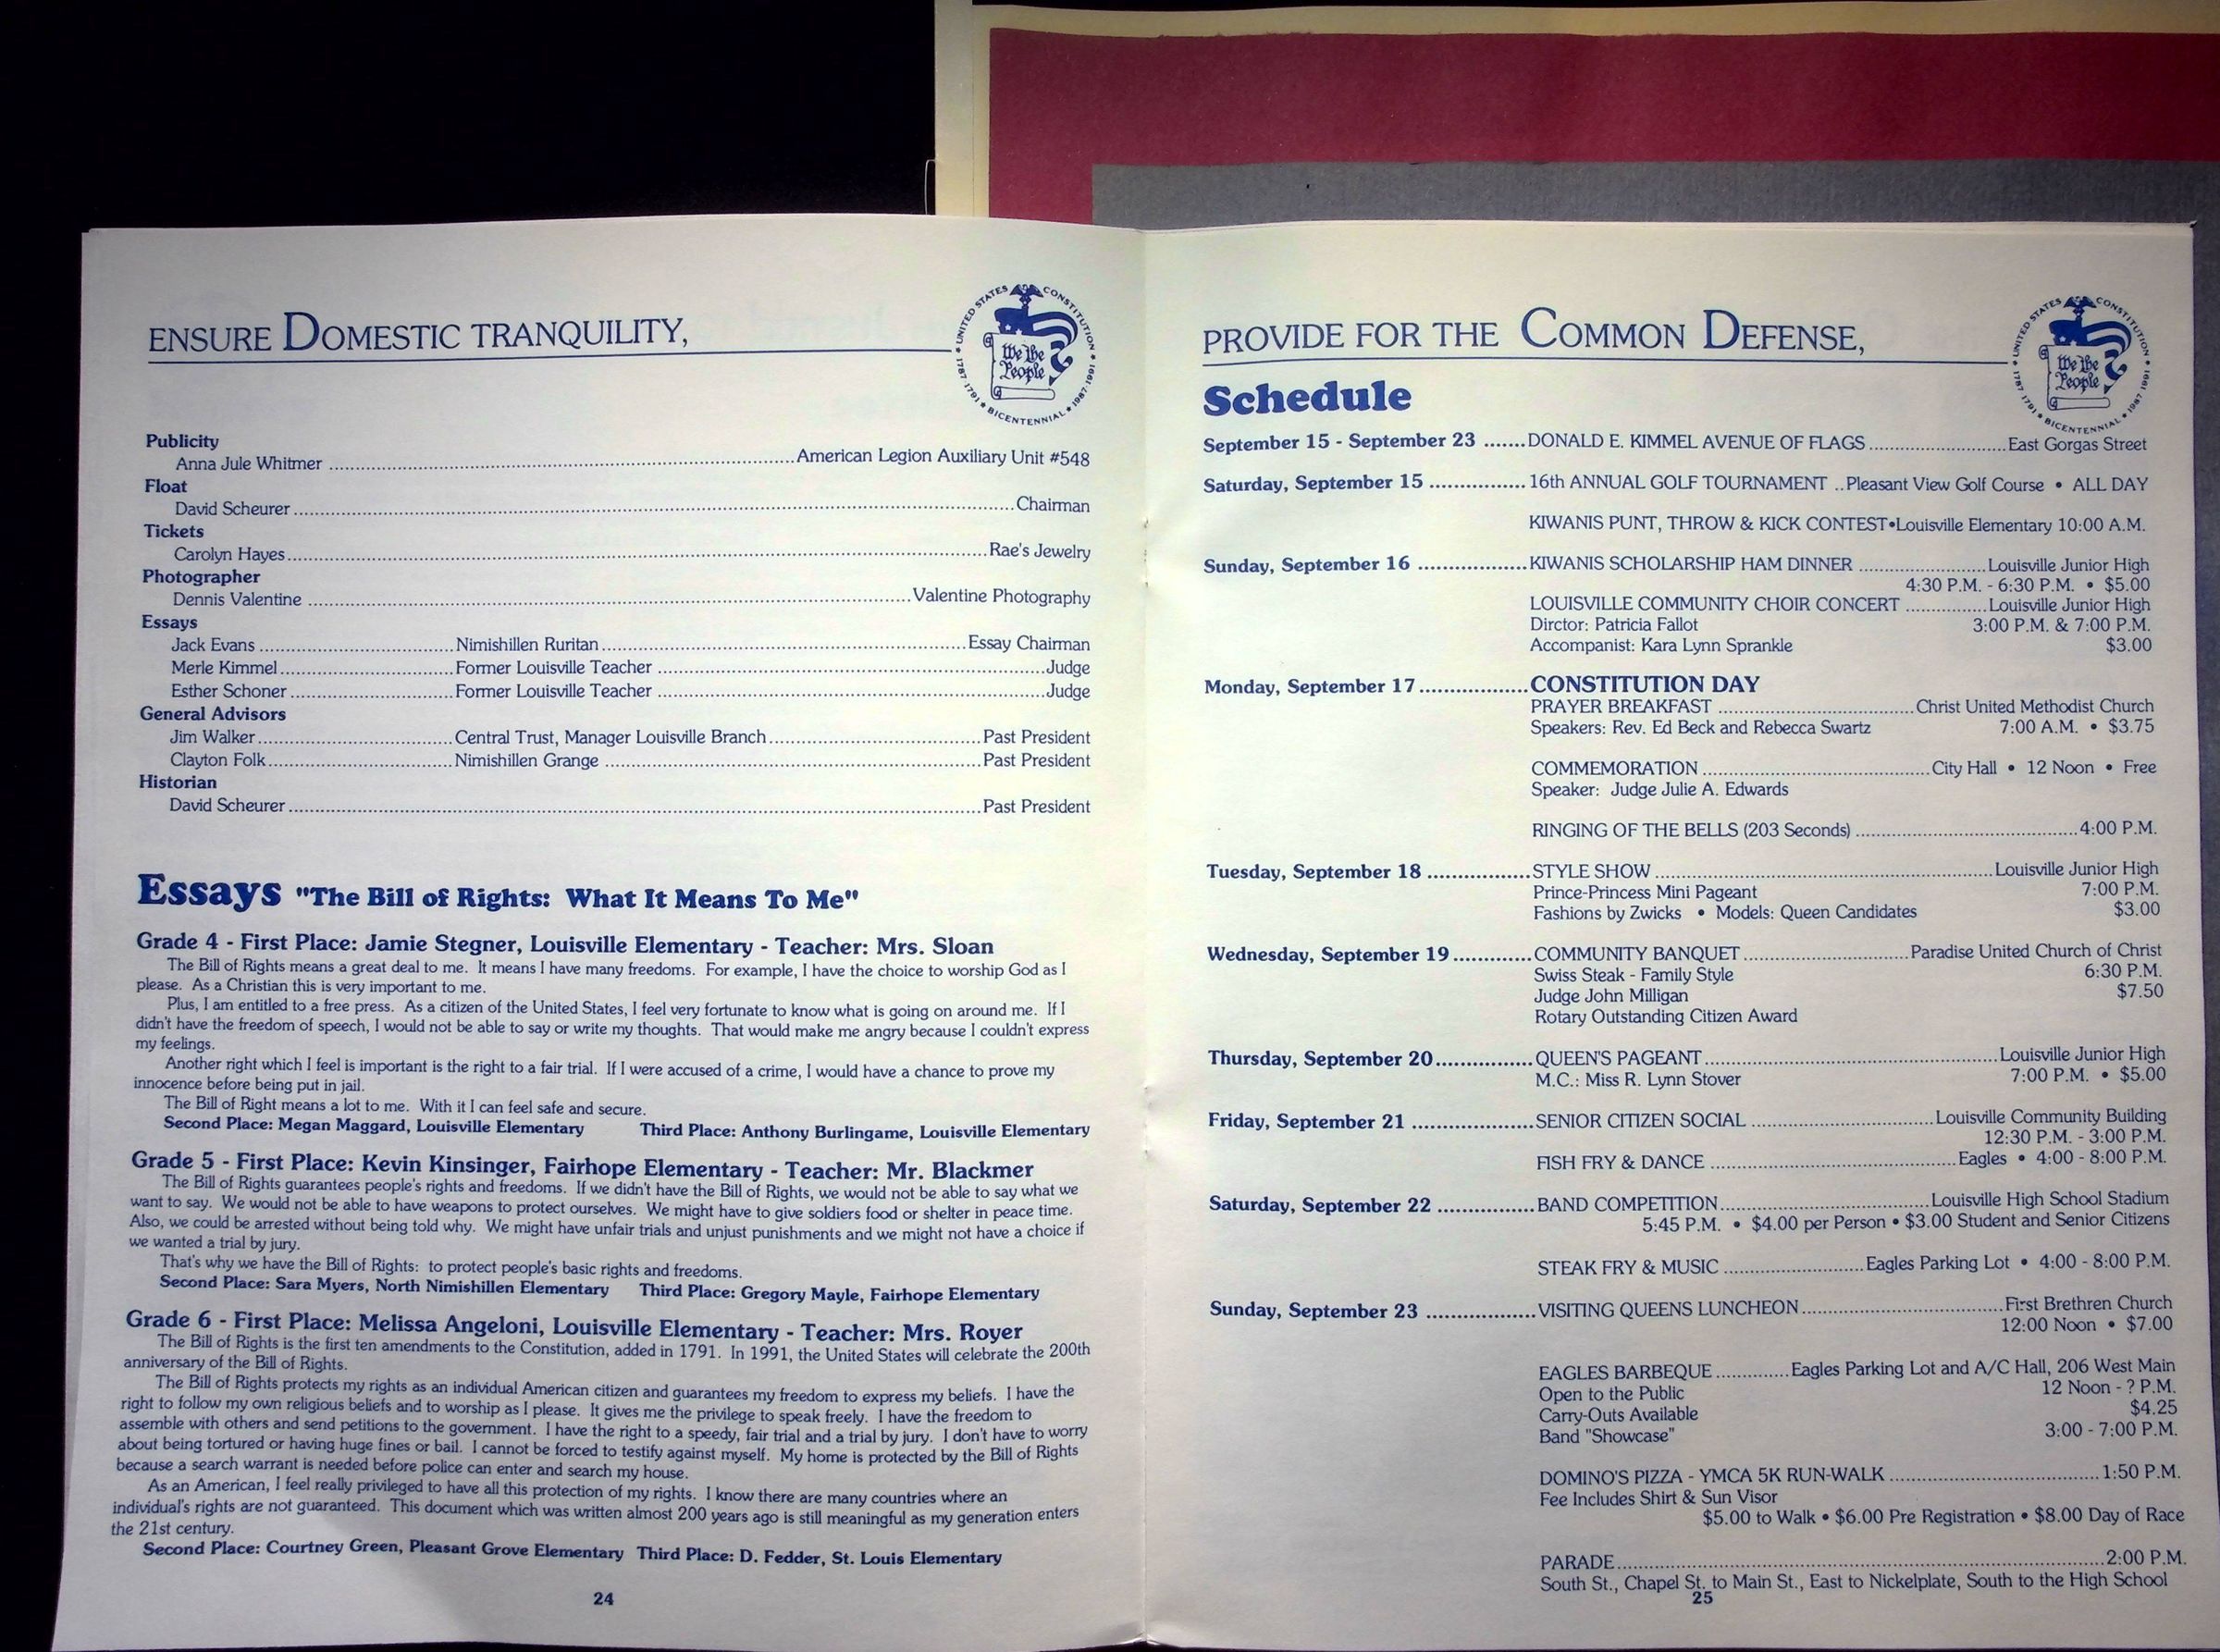 ENSURE DOMESTIC TRANQUILITY,
★ UNITED STATES CONSTITUTION ★ 1787-1791 ★ BICENTENNIAL ★ 1987-1991
We the
People
Publicity
Anna Jule Whitmer ........ American Legion Auxiliary Unit #548
Float
David Scheurer ........ Chairman
Tickets
Carolyn Hayes ........ Rae's Jewelry
Photographer
Dennis Valentine ........ Valentine Photography
Essays
Jack Evans ........ Nimishillen Ruritan ........ Essay Chairman
Merle Kimmel ........ Former Louisville Teacher ........ Judge
Esther Schoner ........ Former Louisville Teacher ........ Judge
General Advisors
Jim Walker ........ Central Trust, Manager Louisville Branch ........ Past President
Clayton Folk ........ Nimishillen Grange ........ Past President
Historian
David Scheurer ........ Past President
Essays "The Bill of Rights: What It Means To Me"
Grade 4 - First Place: Jamie Stegner, Louisville Elementary - Teacher: Mrs. Sloan
The Bill of Rights means a great deal to me. It means I have many freedoms. For example, I have the choice to worship God as I
please. As a Christian this is very important to me.
Plus, I am entitled to a free press. As a citizen of the United States, I feel very fortunate to know what is going on around me. If I
didn't have the freedom of speech, I would not be able to say or write my thoughts. That would make me angry because I couldn't express
my feelings.
Another right which I feel is important is the right to a fair trial. If I were accused of a crime, I would have a chance to prove my
innocence before being put in jail.
The Bill of Right means a lot to me. With it I can feel safe and secure.
Second Place: Megan Maggard, Louisville Elementary Third Place: Anthony Burlingame, Louisville Elementary
Grade 5 - First Place: Kevin Kinsinger, Fairhope Elementary - Teacher: Mr. Blackmer
The Bill of Rights guarantees people's rights and freedoms. If we didn't have the Bill of Rights, we would not be able to say what we
want to say. We would not be able to have weapons to protect ourselves. We might have to give soldiers food or shelter in peace time.
Also, we could be arrested without being told why. We might have unfair trials and unjust punishments and we might not have a choice if
we wanted a trial by jury.
That's why we have the Bill of Rights: to protect people's basic rights and freedoms.
Second Place: Sara Myers, North Nimishillen Elementary Third Place: Gregory Mayle, Fairhope Elementary
Grade 6 - First Place: Melissa Angeloni, Louisville Elementary - Teacher: Mrs. Royer
The Bill of Rights is the first ten amendments to the Constitution, added in 1791. In 1991, the United States will celebrate the 200th
anniversary of the Bill of Rights.
The Bill of Rights protects my rights as an individual American citizen and guarantees my freedom to express my beliefs. I have the
right to follow my own religious beliefs and to worship as I please. It gives me the privilege to speak freely. I have the freedom to
assemble with others and send petitions to the government. I have the right to a speedy, fair trial and a trial by jury. I don't have to worry
about being tortured or having huge fines or bail. I cannot be forced to testify against myself. My home is protected by the Bill of Rights
because a search warrant is needed before police can enter and search my house.
As an American, I feel really privileged to have all this protection of my rights. I know there are many countries where an
individual's rights are not guaranteed. This document which was written almost 200 years ago is still meaningful as my generation enters
the 21st century.
Second Place: Courtney Green, Pleasant Grove Elementary Third Place: D. Fedder, St. Louis Elementary
24
PROVIDE FOR THE COMMON DEFENSE,
★ UNITED STATES CONSTITUTION ★ 1787-1791 ★ BICENTENNIAL ★ 1987-1991
We the
People
Schedule
September 15 - September 23 ....... DONALD E. KIMMEL AVENUE OF FLAGS ........ East Gorgas Street
Saturday, September 15 ........ 16th ANNUAL GOLF TOURNAMENT .. Pleasant View Golf Course • ALL DAY
KIWANIS PUNT, THROW & KICK CONTEST•Louisville Elementary 10:00 A.M.
Sunday, September 16 ........ KIWANIS SCHOLARSHIP HAM DINNER ........ Louisville Junior High
4:30 P.M. - 6:30 P.M. • $5.00
LOUISVILLE COMMUNITY CHOIR CONCERT ........ Louisville Junior High
Dirctor: Patricia Fallot 3:00 P.M. & 7:00 P.M.
Accompanist: Kara Lynn Sprankle $3.00
Monday, September 17 ........ CONSTITUTION DAY
PRAYER BREAKFAST ........ Christ United Methodist Church
Speakers: Rev. Ed Beck and Rebecca Swartz 7:00 A.M. • $3.75
COMMEMORATION ........ City Hall • 12 Noon • Free
Speaker: Judge Julie A. Edwards
RINGING OF THE BELLS (203 Seconds) ........ 4:00 P.M.
Tuesday, September 18 ........ STYLE SHOW ........ Louisville Junior High
Prince-Princess Mini Pageant 7:00 P.M.
Fashions by Zwicks • Models: Queen Candidates $3.00
Wednesday, September 19 ........ COMMUNITY BANQUET ........ Paradise United Church of Christ
Swiss Steak - Family Style 6:30 P.M.
Judge John Milligan $7.50
Rotary Outstanding Citizen Award
Thursday, September 20 ........ QUEEN'S PAGEANT ........ Louisville Junior High
M.C.: Miss R. Lynn Stover 7:00 P.M. • $5.00
Friday, September 21 ........ SENIOR CITIZEN SOCIAL ........ Louisville Community Building
12:30 P.M. - 3:00 P.M.
FISH FRY & DANCE ........ Eagles • 4:00 - 8:00 P.M.
Saturday, September 22 ........ BAND COMPETITION ........ Louisville High School Stadium
5:45 P.M. • $4.00 per Person • $3.00 Student and Senior Citizens
STEAK FRY & MUSIC ........ Eagles Parking Lot • 4:00 - 8:00 P.M.
Sunday, September 23 ........ VISITING QUEENS LUNCHEON ........ First Brethren Church
12:00 Noon • $7.00
EAGLES BARBEQUE ........ Eagles Parking Lot and A/C Hall, 206 West Main
Open to the Public 12 Noon - ? P.M.
Carry-Outs Available $4.25
Band "Showcase" 3:00 - 7:00 P.M.
DOMINO'S PIZZA - YMCA 5K RUN-WALK ........ 1:50 P.M.
Fee Includes Shirt & Sun Visor
$5.00 to Walk • $6.00 Pre Registration • $8.00 Day of Race
PARADE ........ 2:00 P.M.
South St., Chapel St. to Main St., East to Nickelplate, South to the High School
25